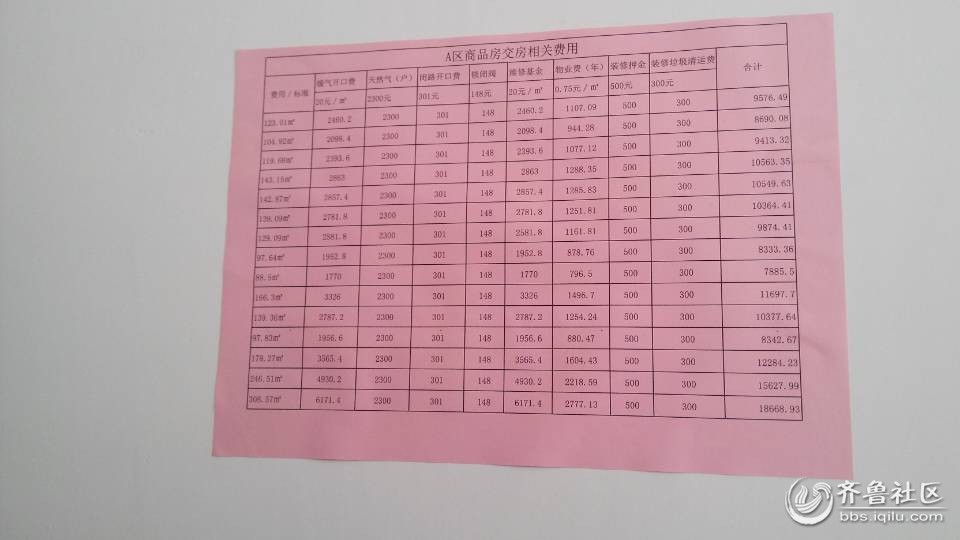 A区商品房交房相关费用
费用/标准 暖气开口费 天然气（户） 闭路开口费 锁闭阀 维修基金 物业费（年） 装修押金 装修垃圾清运费 合计
20元/㎡ 2300元 301元 148元 20元/㎡ 0.75元/㎡ 500元 300元
123.01㎡ 2460.2 2300 301 148 2460.2 1107.09 500 300 9576.49
104.92㎡ 2098.4 2300 301 148 2098.4 944.28 500 300 8690.08
119.68㎡ 2393.6 2300 301 148 2393.6 1077.12 500 300 9413.32
143.15㎡ 2863 2300 301 148 2863 1288.35 500 300 10563.35
142.87㎡ 2857.4 2300 301 148 2857.4 1285.83 500 300 10549.63
139.09㎡ 2781.8 2300 301 148 2781.8 1251.81 500 300 10364.41
129.09㎡ 2581.8 2300 301 148 2581.8 1161.81 500 300 9874.41
97.64㎡ 1952.8 2300 301 148 1952.8 878.76 500 300 8333.36
88.5㎡ 1770 2300 301 148 1770 796.5 500 300 7885.5
166.3㎡ 3326 2300 301 148 3326 1496.7 500 300 11697.7
139.36㎡ 2787.2 2300 301 148 2787.2 1254.24 500 300 10377.64
97.83㎡ 1956.6 2300 301 148 1956.6 880.47 500 300 8342.67
178.27㎡ 3565.4 2300 301 148 3565.4 1604.43 500 300 12284.23
246.51㎡ 4930.2 2300 301 148 4930.2 2218.59 500 300 15627.99
308.57㎡ 6171.4 2300 301 148 6171.4 2777.13 500 300 18668.93
齐鲁社区
bbs.iqilu.com